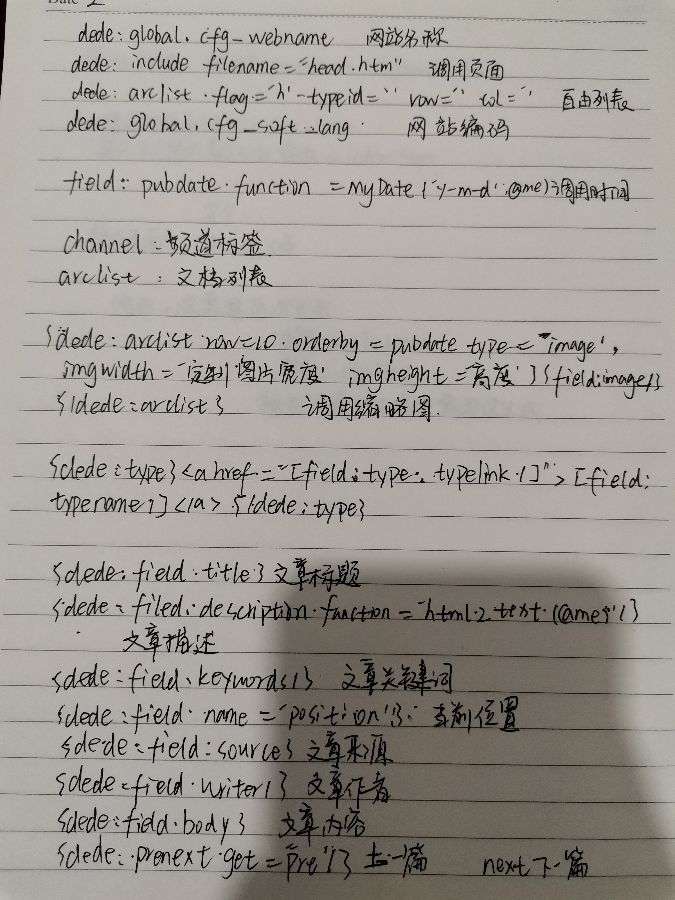 dede: global. cfg_webname 网站名称
dede: include filename="head.htm" 调用页面
dede: arclist.flag='h' typeid='' row='' col='' 自由列表
dede: global. cfg_soft_lang 网站编码
field: pubdate.function =MyDate('y-m-d', @me) 调用时间
channel: 频道标签.
arclist : 文档列表
{dede: arclist row=10 . orderby = pubdate type = 'image',
imgwidth='定制 图片宽度' imgheight='高度'}{field:image/}
{/dede:arclist} 调用缩略图.
{dede:type}<a href="[field:type. typelink /]"> [field:
typename /] </a> {/dede:type}
{dede: field.title} 文章标题
{dede: filed.description.function='html2text (@me)'/}
文章描述
{dede:field.keywords/} 文章关键词
{dede:field.name='position'/}. 当前位置
{dede:field:source} 文章来源
{dede:field.writer/} 文章作者
{dede:field.body} 文章内容
{dede:.prenext.get='pre'/} 上一篇 next 下一篇